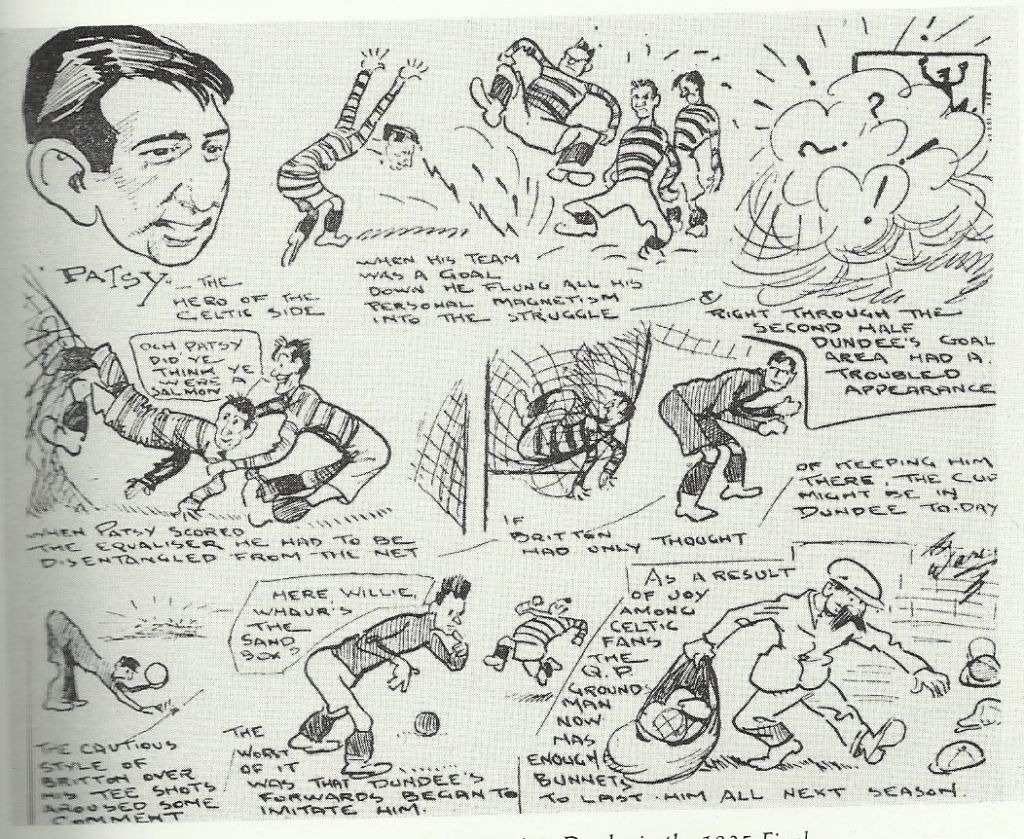 PATSY - THE
HERO OF THE
CELTIC SIDE
WHEN HIS TEAM
WAS A GOAL
DOWN HE FLUNG ALL HIS
PERSONAL MAGNETISM
INTO THE STRUGGLE
&
RIGHT THROUGH THE
SECOND HALF
DUNDEE'S GOAL
AREA HAD A
TROUBLED
APPEARANCE
! ? ? ! ! !
OCH PATSY
DID YE
THINK YE
WERE A
SALMON
WHEN PATSY SCORED
THE EQUALISER HE HAD TO BE
DISENTANGLED FROM THE NET
IF
BRITTON
HAD ONLY THOUGHT
OF KEEPING HIM
THERE, THE CUP
MIGHT BE IN
DUNDEE TO-DAY
THE CAUTIOUS
STYLE OF
BRITTON OVER
HIS TEE SHOTS
AROUSED SOME
COMMENT
HERE, WILLIE,
WHAUR'S
THE
SAND
BOX?
THE
WORST
OF IT
WAS THAT DUNDEE'S
FORWARDS BEGAN TO
IMITATE HIM.
AS A RESULT
OF JOY
AMONG
CELTIC
FANS
THE
Q.P.
GROUND
MAN
NOW
HAS
ENOUGH
BUNNETS
TO LAST HIM ALL NEXT SEASON.
in the 1925 Final